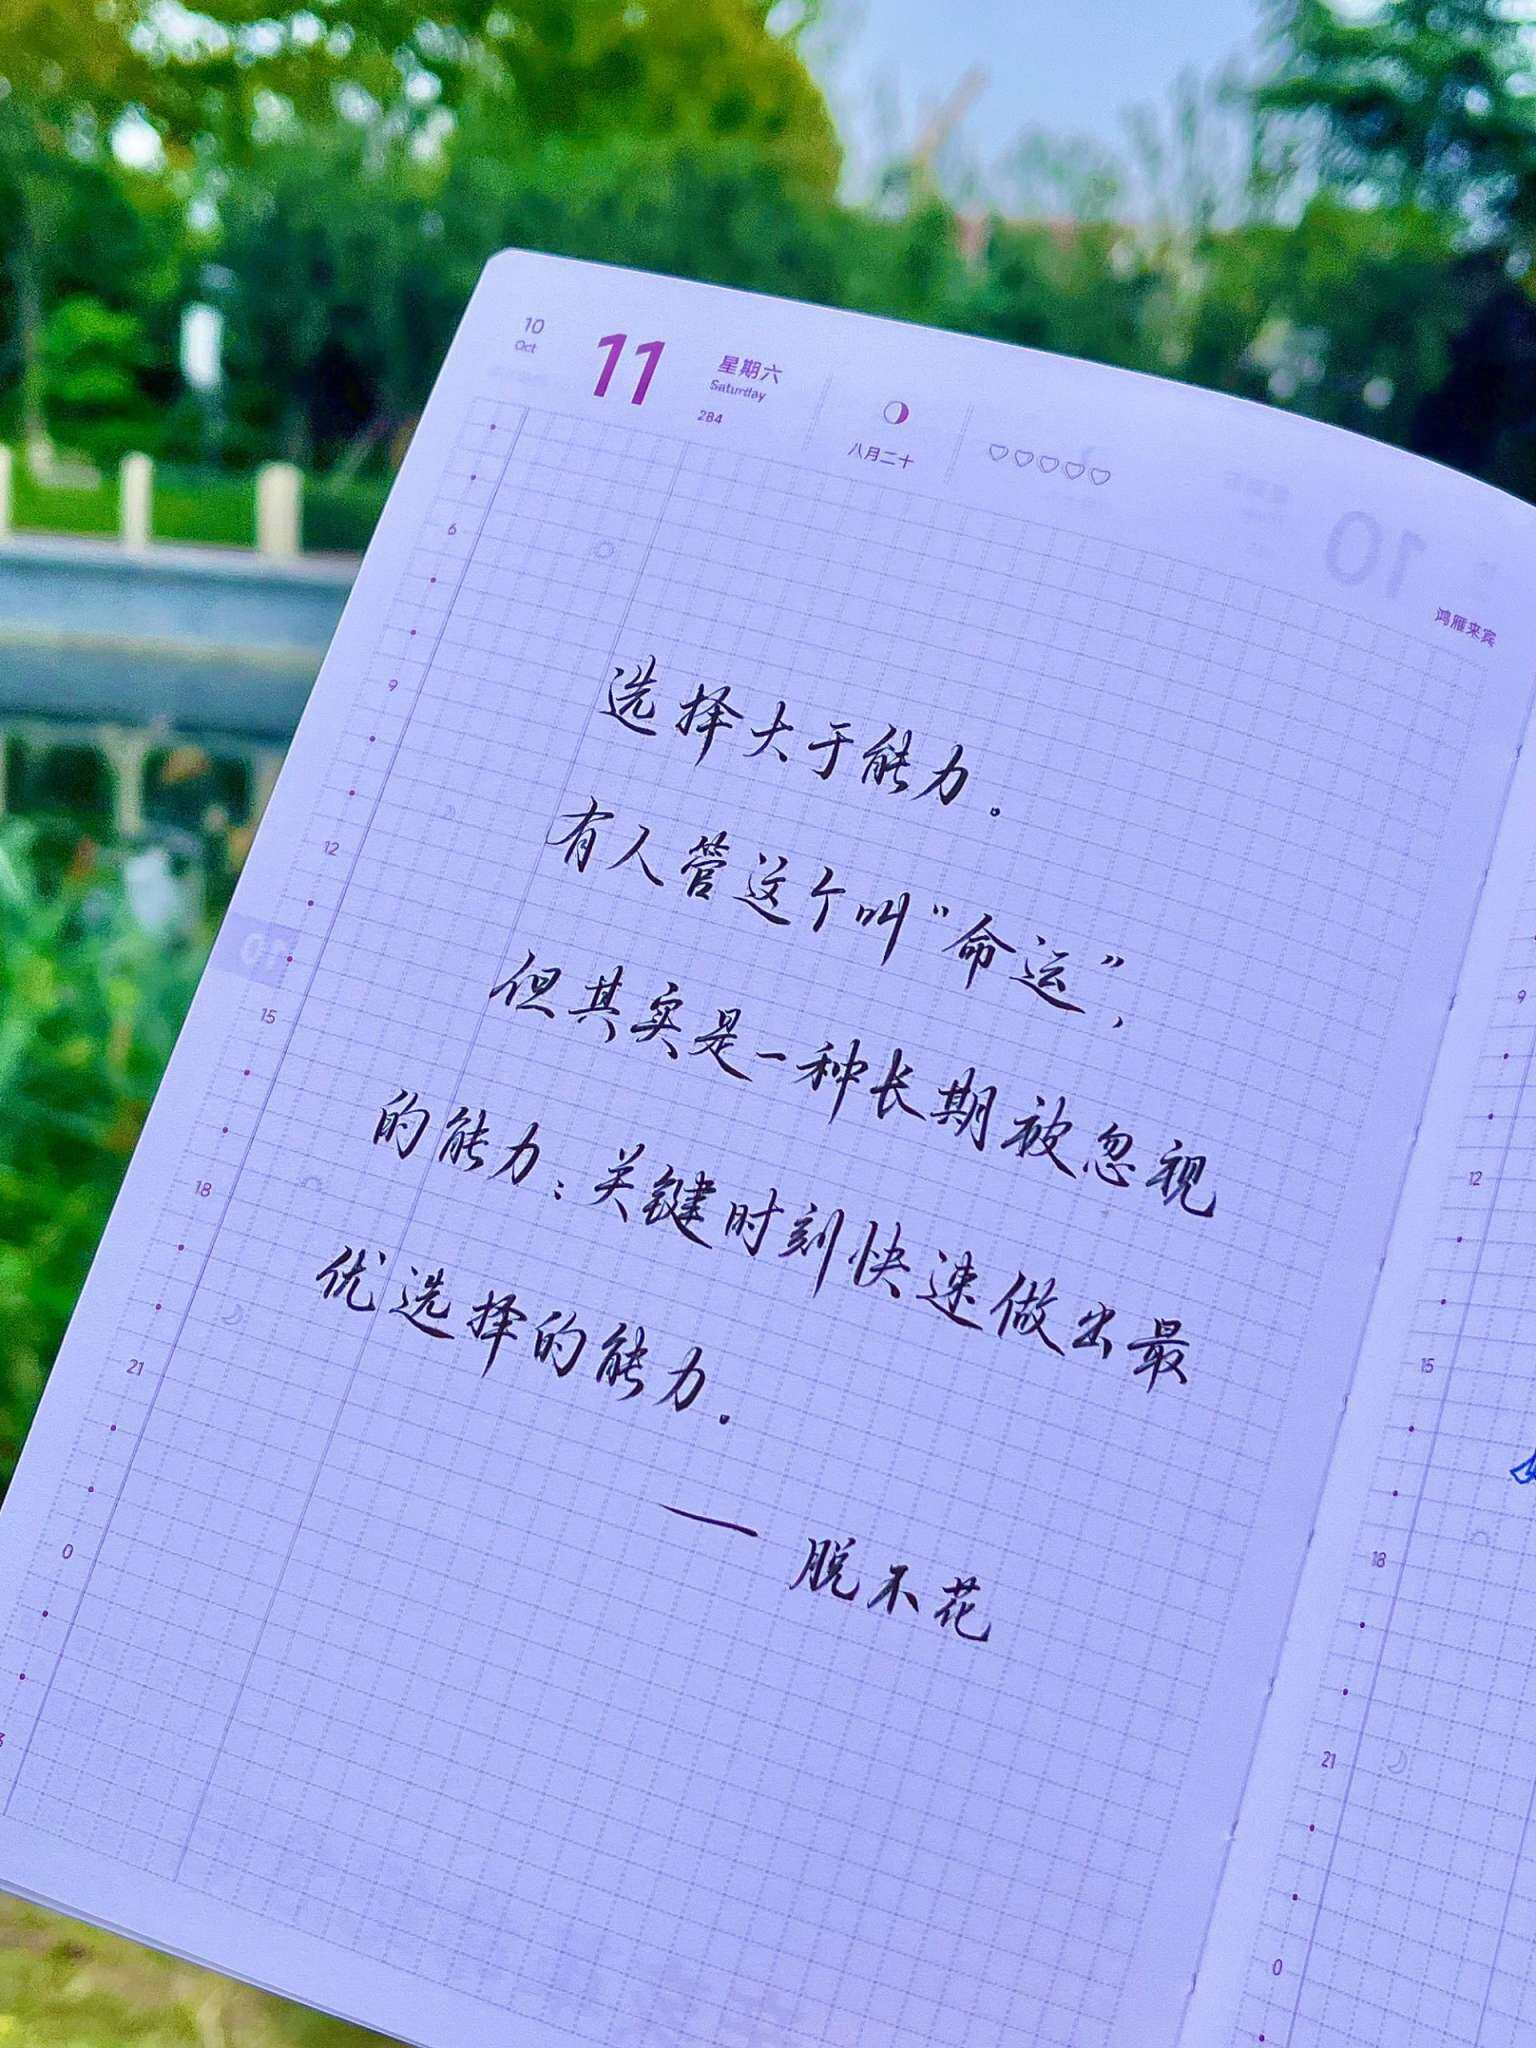 10
Oct
11
星期六
Saturday
284
八月二十
鸿雁来宾
选择大于能力。
有人管这个叫“命运”，
但其实是一种长期被忽视
的能力：关键时刻快速做出最
优选择的能力。
——脱不花
6
9
12
15
18
21
0
9
12
15
18
21
0